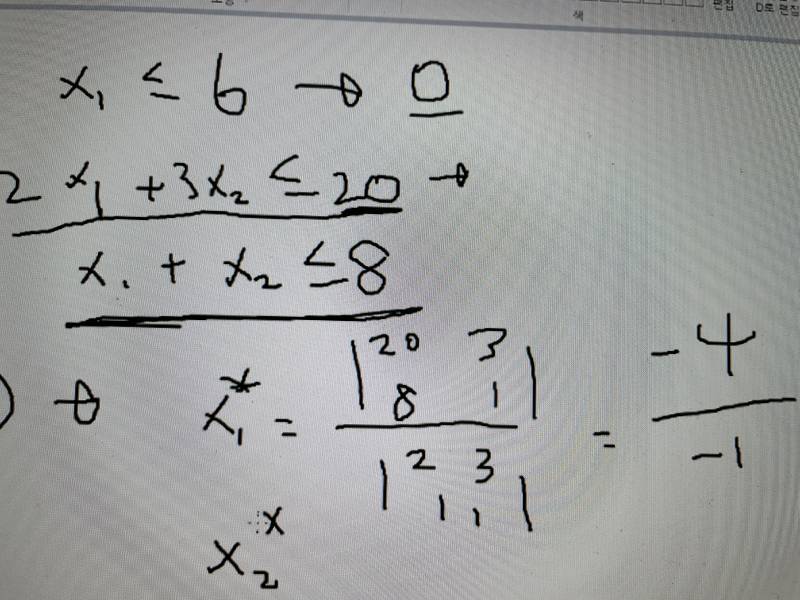 색
편집
x₁ ≤ 6 → 0
2x₁ + 3x₂ ≤ 20 →
x₁ + x₂ ≤ 8
) → x₁* = |20 3 8 1| / |2 3 1 1| = -4 / -1
x₂*